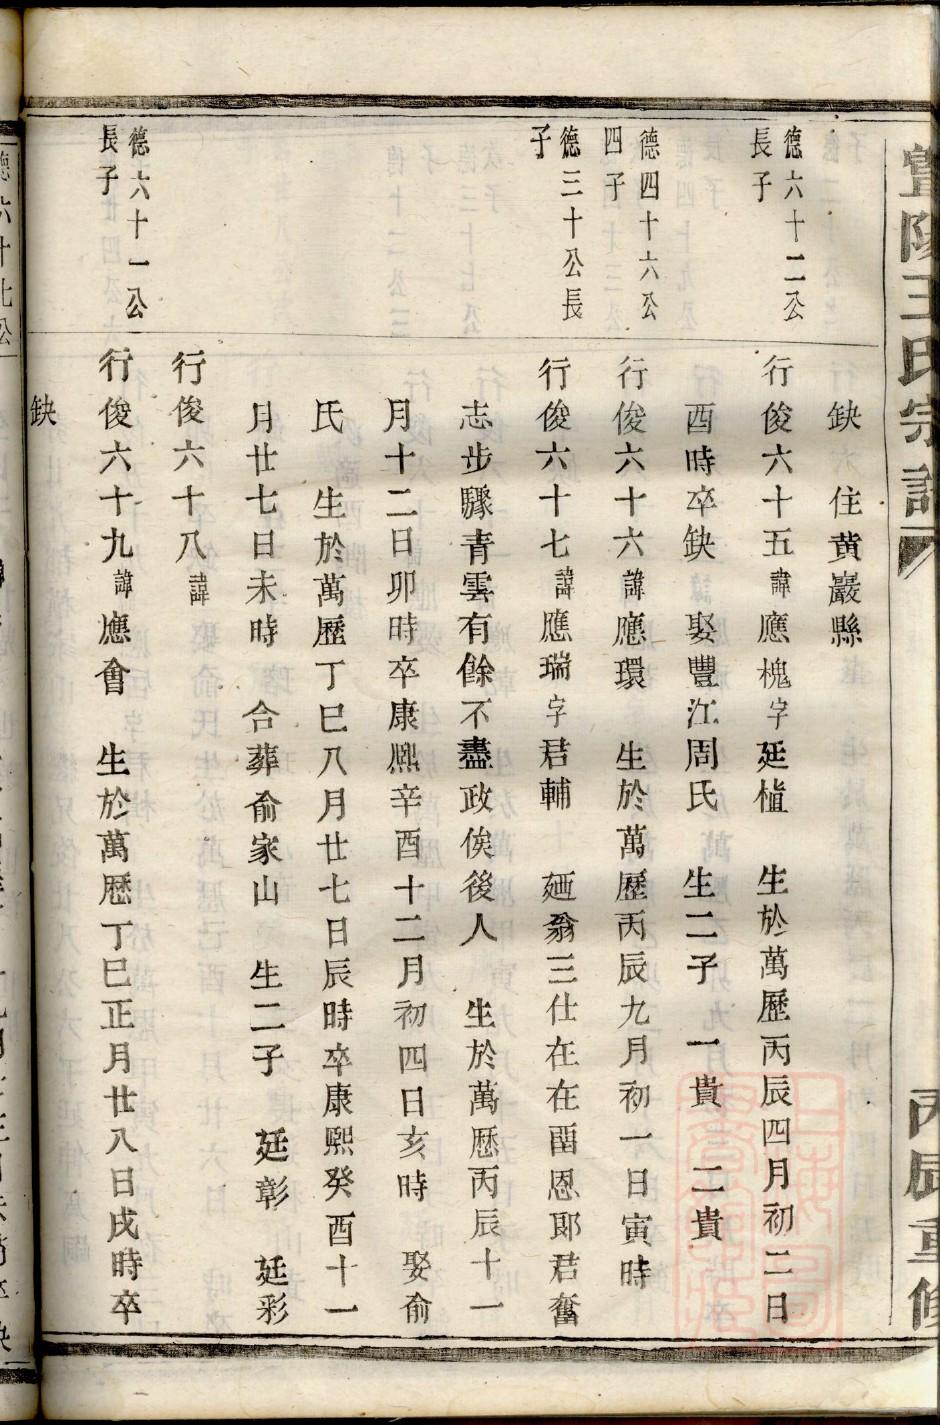 暨陽王氏宗譜
丙辰重修
缺　住黃巖縣
德六十二公
長子
行俊六十五諱應槐字廷植　生於萬歷丙辰四月初二日
酉時卒缺　娶豐江周氏　生二子　一貴　二貴
德四十六公
四子
行俊六十六諱應環　生於萬歷丙辰九月初一日寅時
德三十公長
子
行俊六十七諱應瑞字君輔　廼翁三仕在在畱恩郎君奮
志步驟青雲有餘不盡政俟後人　生於萬歷丙辰十一
月十二日卯時卒康熙辛酉十二月初四日亥時　娶俞
氏　生於萬歷丁巳八月廿七日辰時卒康熙癸酉十一
月廿七日未時　合葬俞家山　生二子　廷彰　廷彩
行俊六十八諱
德六十一公
長子
行俊六十九諱應會　生於萬歷丁巳正月廿八日戌時卒
缺